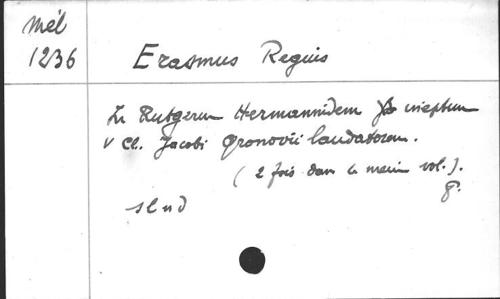 Mél
1236
Erasmus Reguis
In Rutgerum Hermannidem ineptum
V Cl. Jacobi Gronovii laudatorem.
(2 fois dans le même vol.).
8°.
sl nd